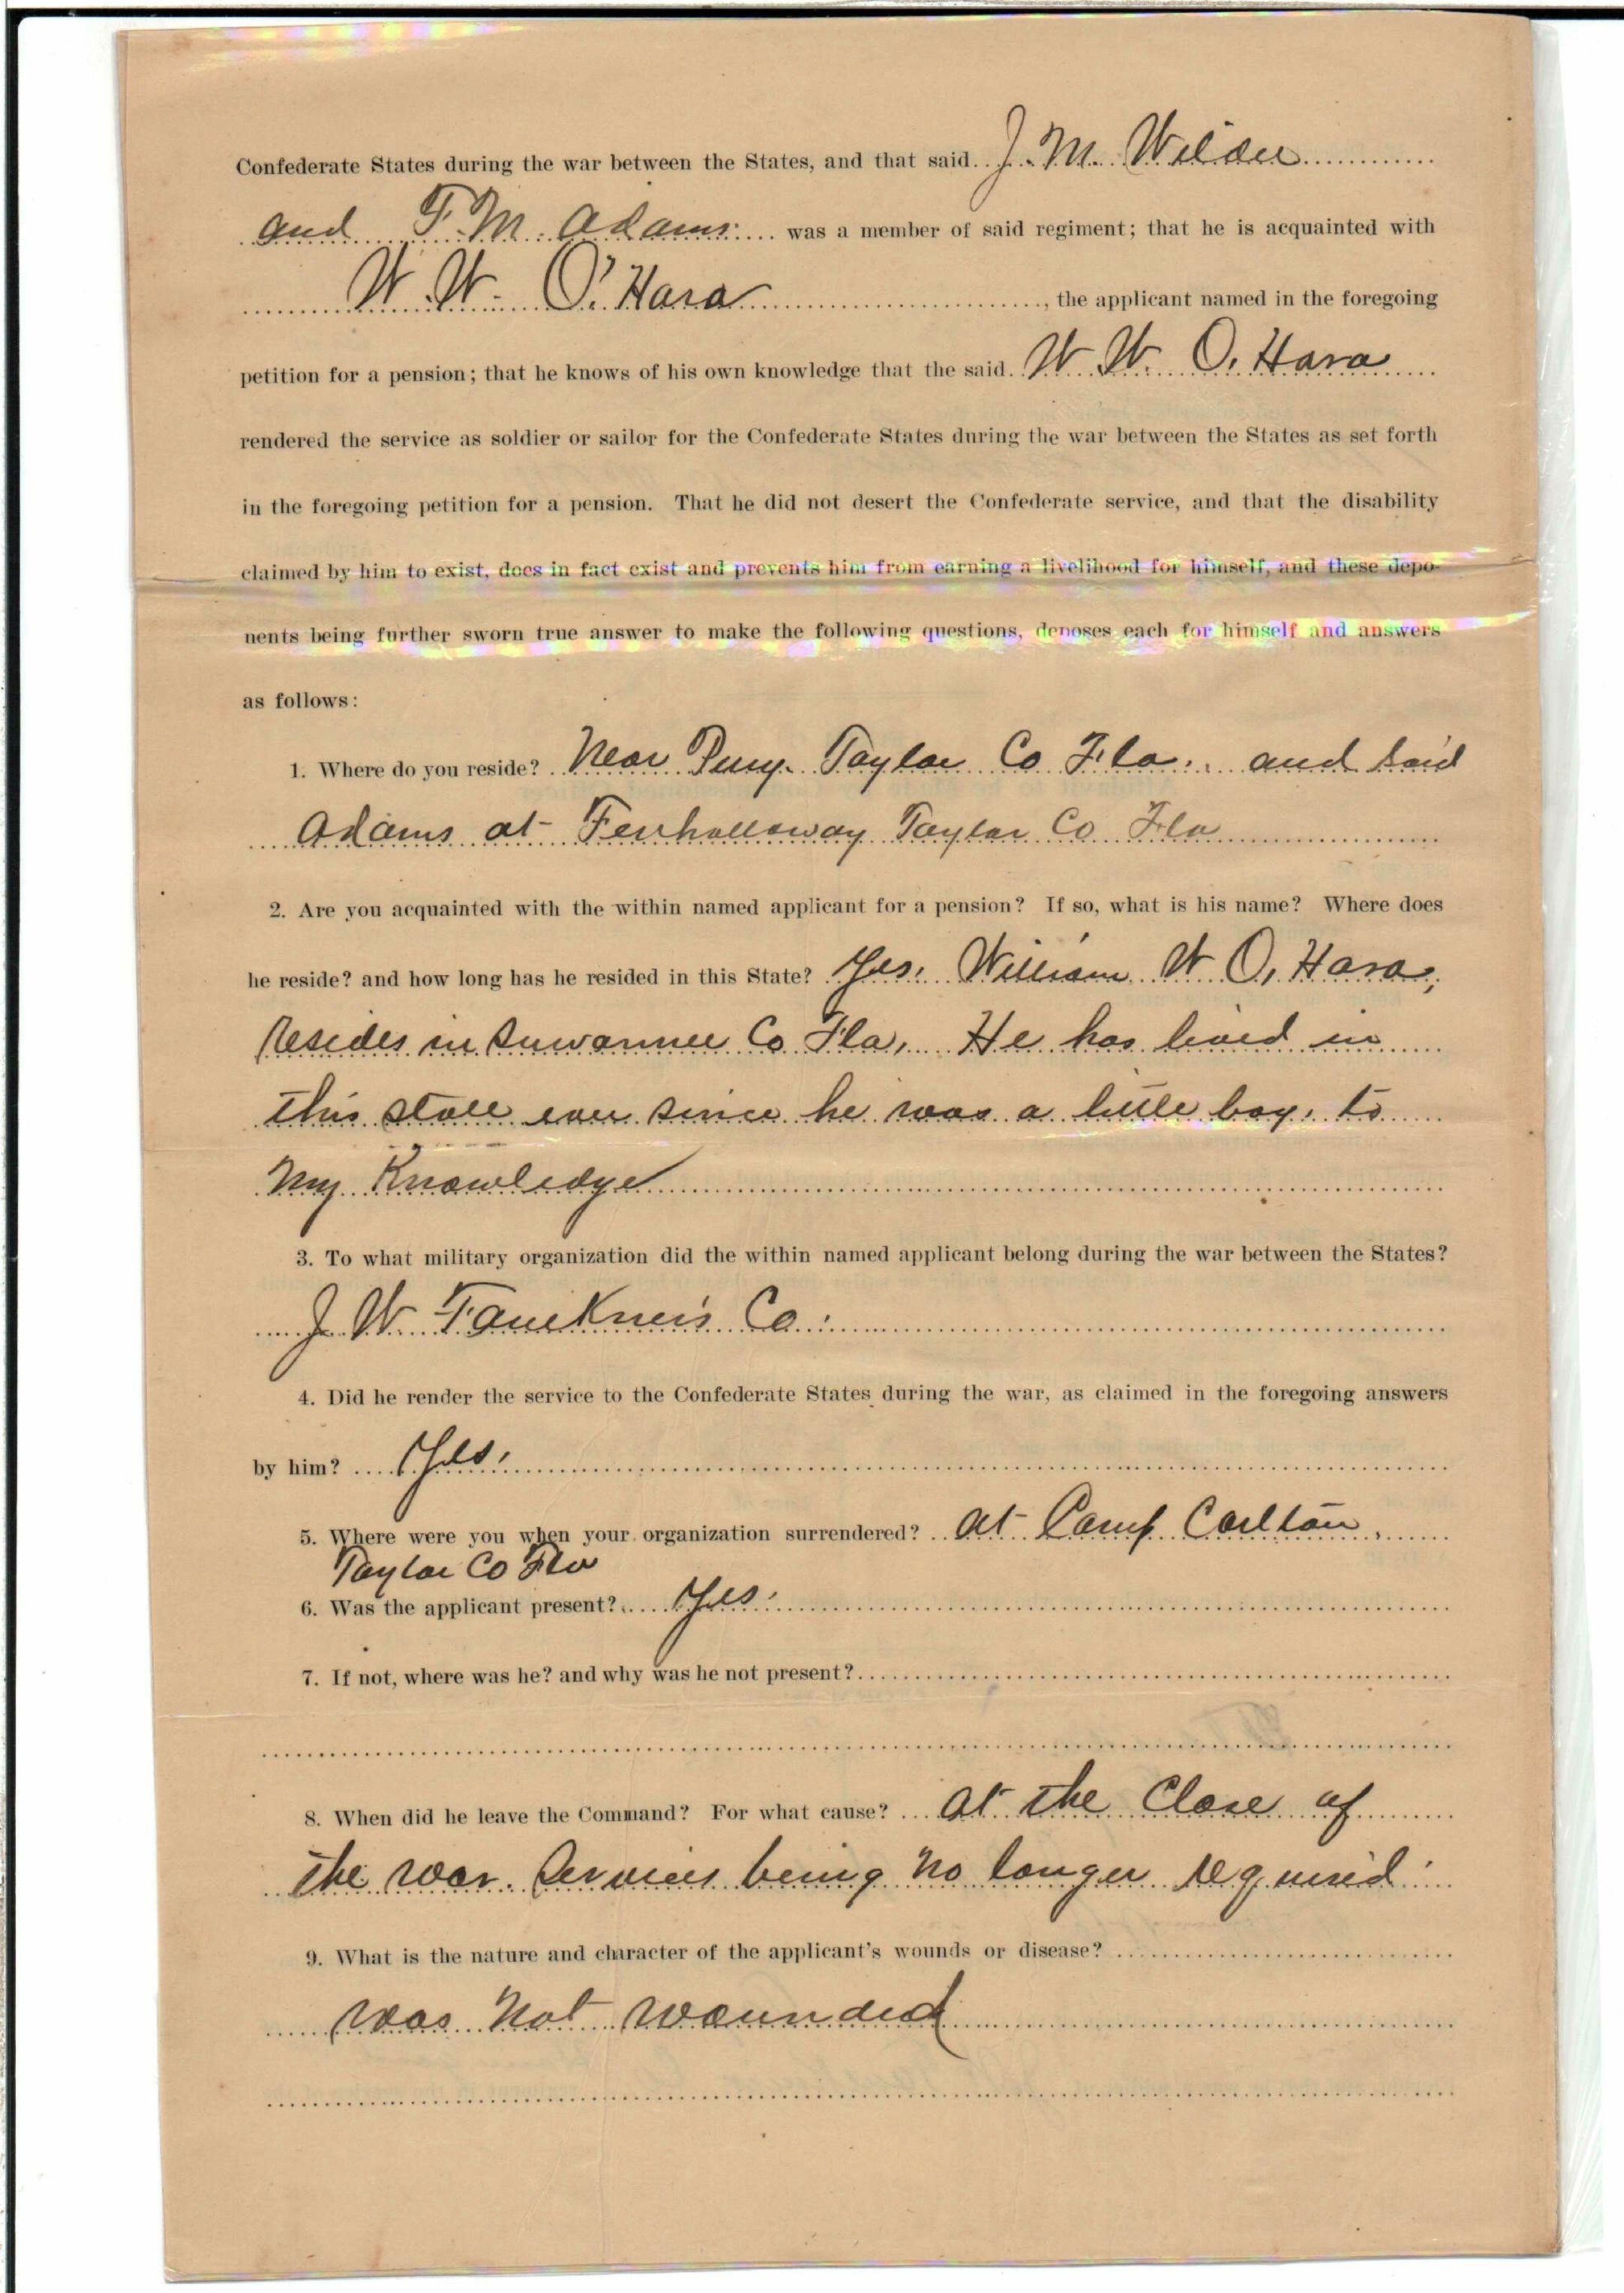 Confederate States during the war between the States, and that said J. M. Wilder
and T. M. Adams was a member of said regiment; that he is acquainted with
W. W. O'Hara, the applicant named in the foregoing
petition for a pension; that he knows of his own knowledge that the said W. W. O. Hara
rendered the service as soldier or sailor for the Confederate States during the war between the States as set forth
in the foregoing petition for a pension. That he did not desert the Confederate service, and that the disability
claimed by him to exist, does in fact exist and prevents him from earning a livelihood for himself, and these depo-
nents being further sworn true answer to make the following questions, deposes each for himself and answers
as follows:
1. Where do you reside? Near Perry. Taylor Co Fla. and said
Adams at Fenholloway Taylor Co Fla
2. Are you acquainted with the within named applicant for a pension? If so, what is his name? Where does
he reside? and how long has he resided in this State? Yes. William W O, Hara,
resides in Suwannee Co Fla, He has lived in
this state ever since he was a little boy. to
my Knowledge
3. To what military organization did the within named applicant belong during the war between the States?
J. W. Faulkner's Co.
4. Did he render the service to the Confederate States during the war, as claimed in the foregoing answers
by him? Yes.
5. Where were you when your organization surrendered? at Camp Carlton,
Taylor Co Fla
6. Was the applicant present? Yes.
7. If not, where was he? and why was he not present?
8. When did he leave the Command? For what cause? at the Close of
the war. Services being no longer required.
9. What is the nature and character of the applicant's wounds or disease?
was not wounded